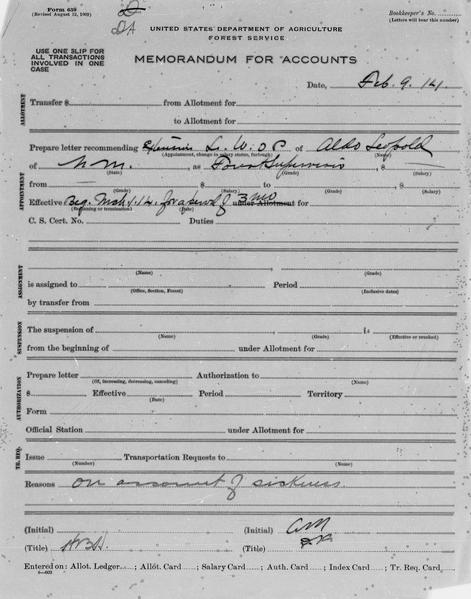 Form 639
(Revised August 12, 1909)
DA
Bookkeeper's No.
(Letters will bear this number)
UNITED STATES DEPARTMENT OF AGRICULTURE
FOREST SERVICE
USE ONE SLIP FOR
ALL TRANSACTIONS
INVOLVED IN ONE
CASE
MEMORANDUM FOR ACCOUNTS
Date, Feb. 9. 14
ALLOTMENT
Transfer $ from Allotment for
to Allotment for
APPOINTMENT
Prepare letter recommending L. W. O P. of Aldo Leopold
(Appointment, change in salary status, furlough) (Name)
of N.M. as Forest Supervisor, $
(State) (Grade) (Salary)
from $ to $
(Grade) (Salary) (Grade) (Salary)
Effective Beg. Mch 1.14. for a period of 3 mo under Allotment for
(Beginning or termination) (Date)
C. S. Cert. No. Duties
ASSIGNMENT
(Name) (Grade)
is assigned to Period
(Office, Section, Forest) (Inclusive dates)
by transfer from
SUSPENSION
The suspension of is
(Name) (Grade) (Effective or revoked)
from the beginning of under Allotment for
AUTHORIZATION
Prepare letter Authorization to
(Of, increasing, decreasing, canceling) (Name) (Grade)
$ Effective Period Territory
(Date)
Form
Official Station under Allotment for
TR. REQ.
Issue Transportation Requests to
(Number) (Name) (Grade)
Reasons on account of sickness
(Initial) (Initial)
(Title) (Title)
Entered on: Allot. Ledger Allot. Card ; Salary Card ; Auth. Card ; Index Card ; Tr. Req. Card
6—603